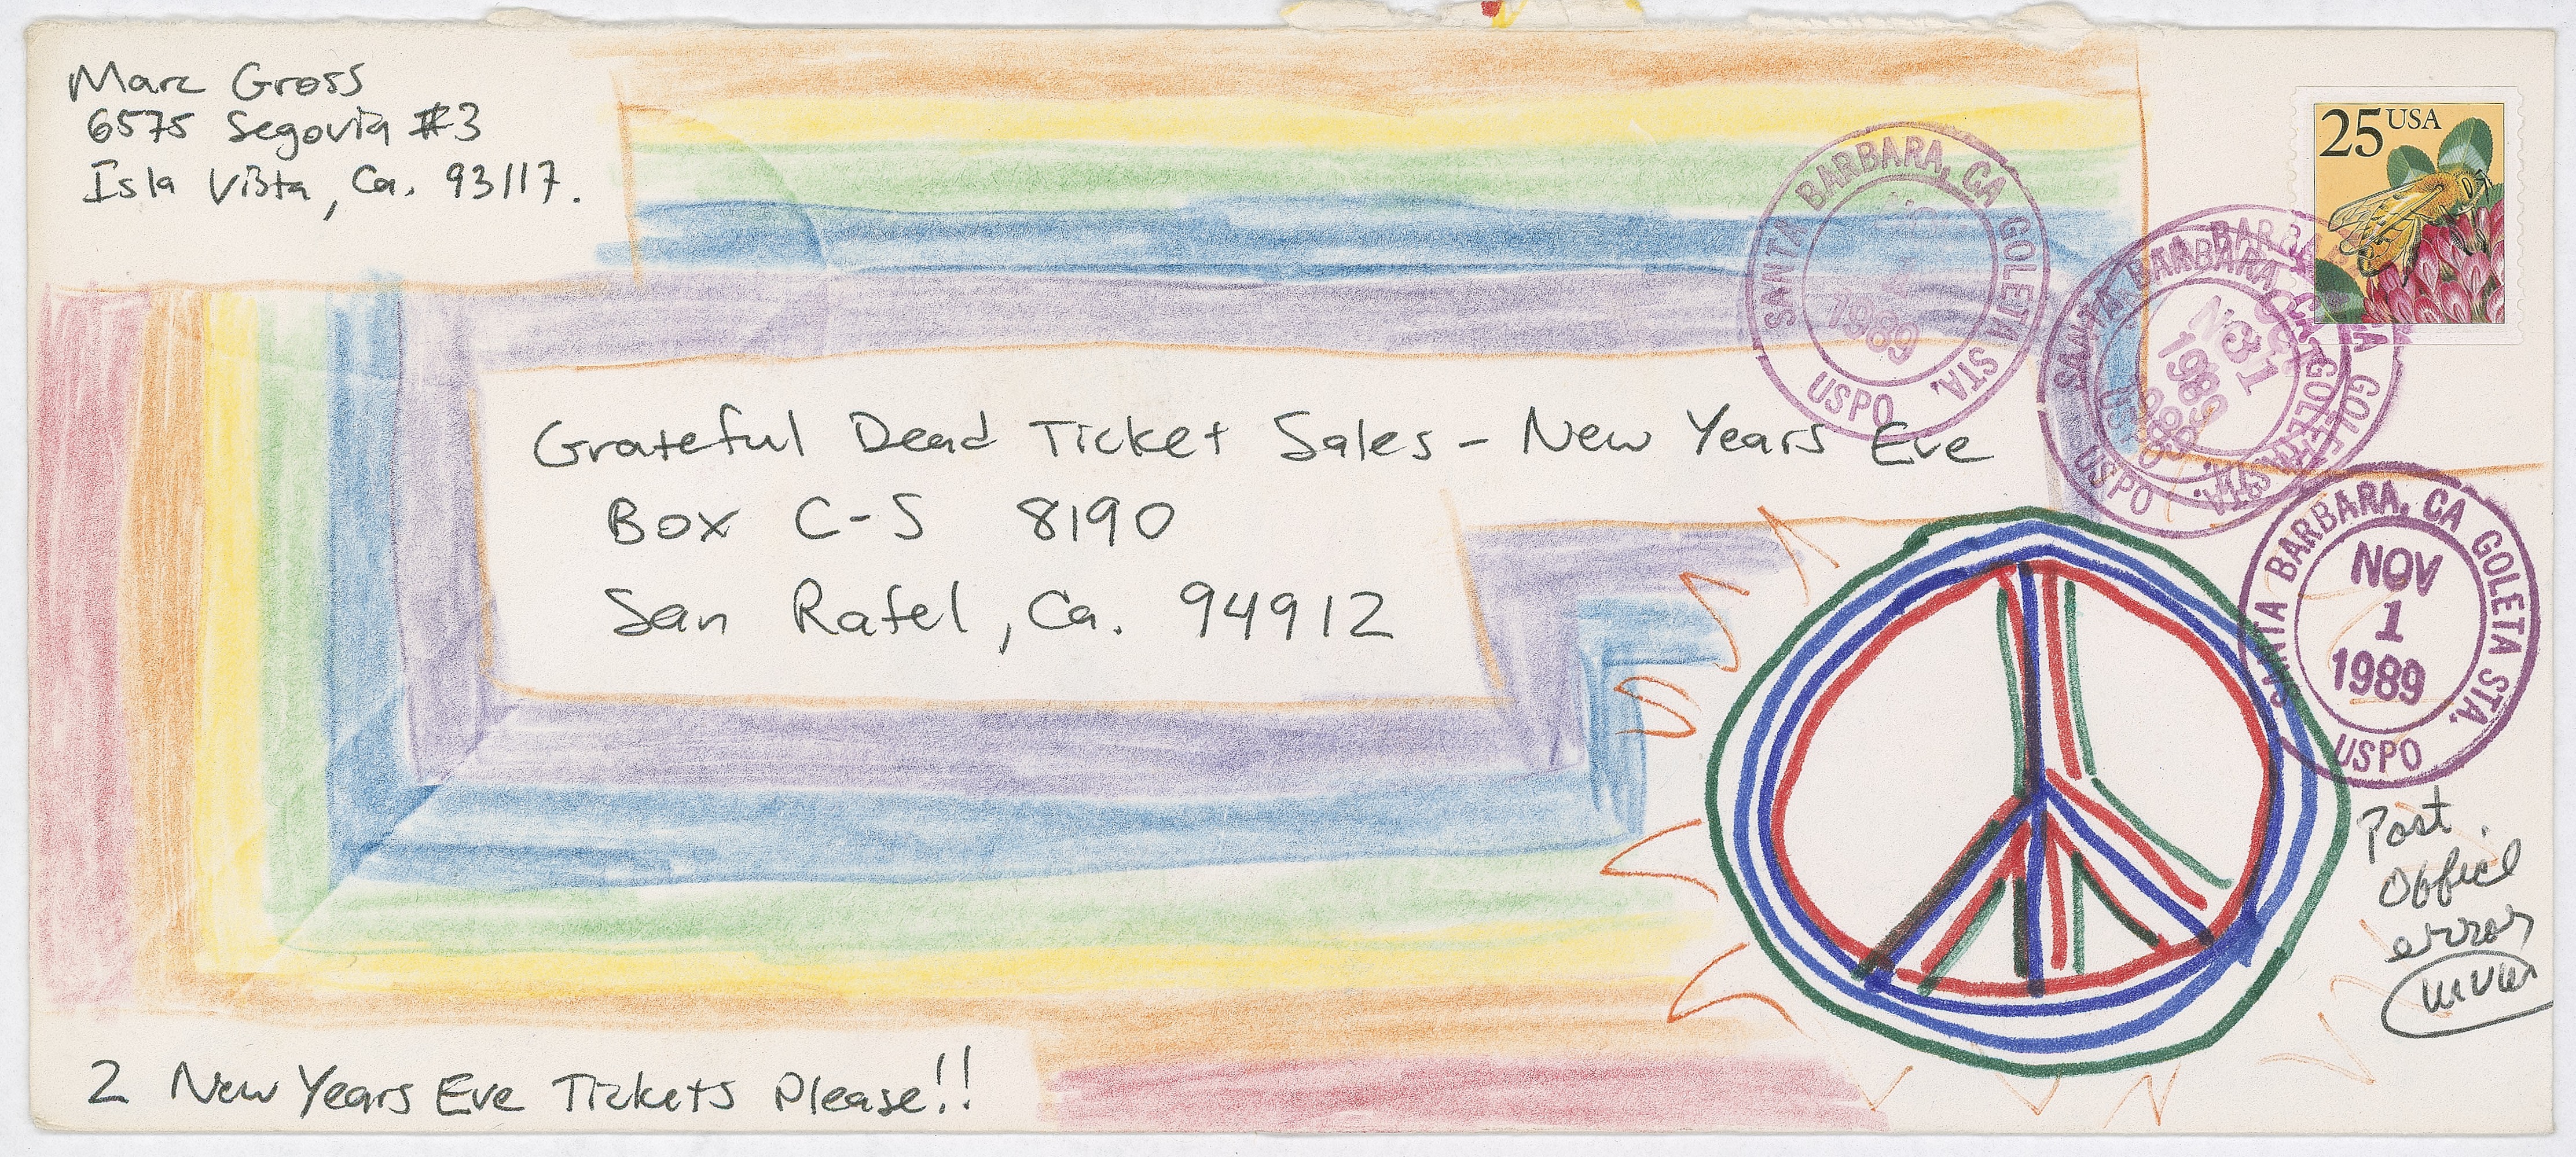 Marc Gross
6575 Segovia #3
Isla Vista, Ca. 93117.
25 USA
SANTA BARBARA, CA GOLETA STA.
1989
USPO
SANTA BARBARA, CA GOLETA STA.
1989
USPO
Grateful Dead Ticket Sales - New Years Eve
Box C-S 8190
San Rafel, Ca. 94912
SANTA BARBARA, CA GOLETA STA.
NOV
1
1989
USPO
Post
Office
error
2 New Years Eve Tickets Please!!